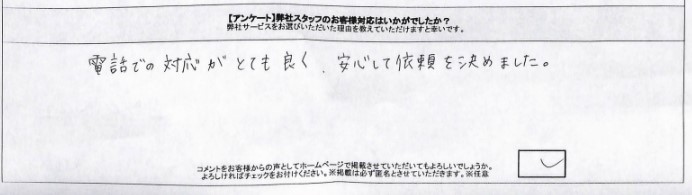 【アンケート】弊社スタッフのお客様対応はいかがでしたか？
弊社サービスをお選びいただいた理由を教えていただけますと幸いです。
電話での対応がとても良く、安心して依頼を決めました。
コメントをお客様からの声としてホームページで掲載させていただいてもよろしいでしょうか。
よろしければチェックをお付けください。※掲載は必ず匿名とさせていただきます。※任意